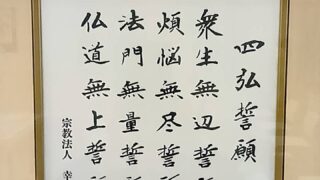 四弘誓願
衆生無辺誓
煩悩無尽誓
法門無量誓
仏道無上誓
宗教法人 幸